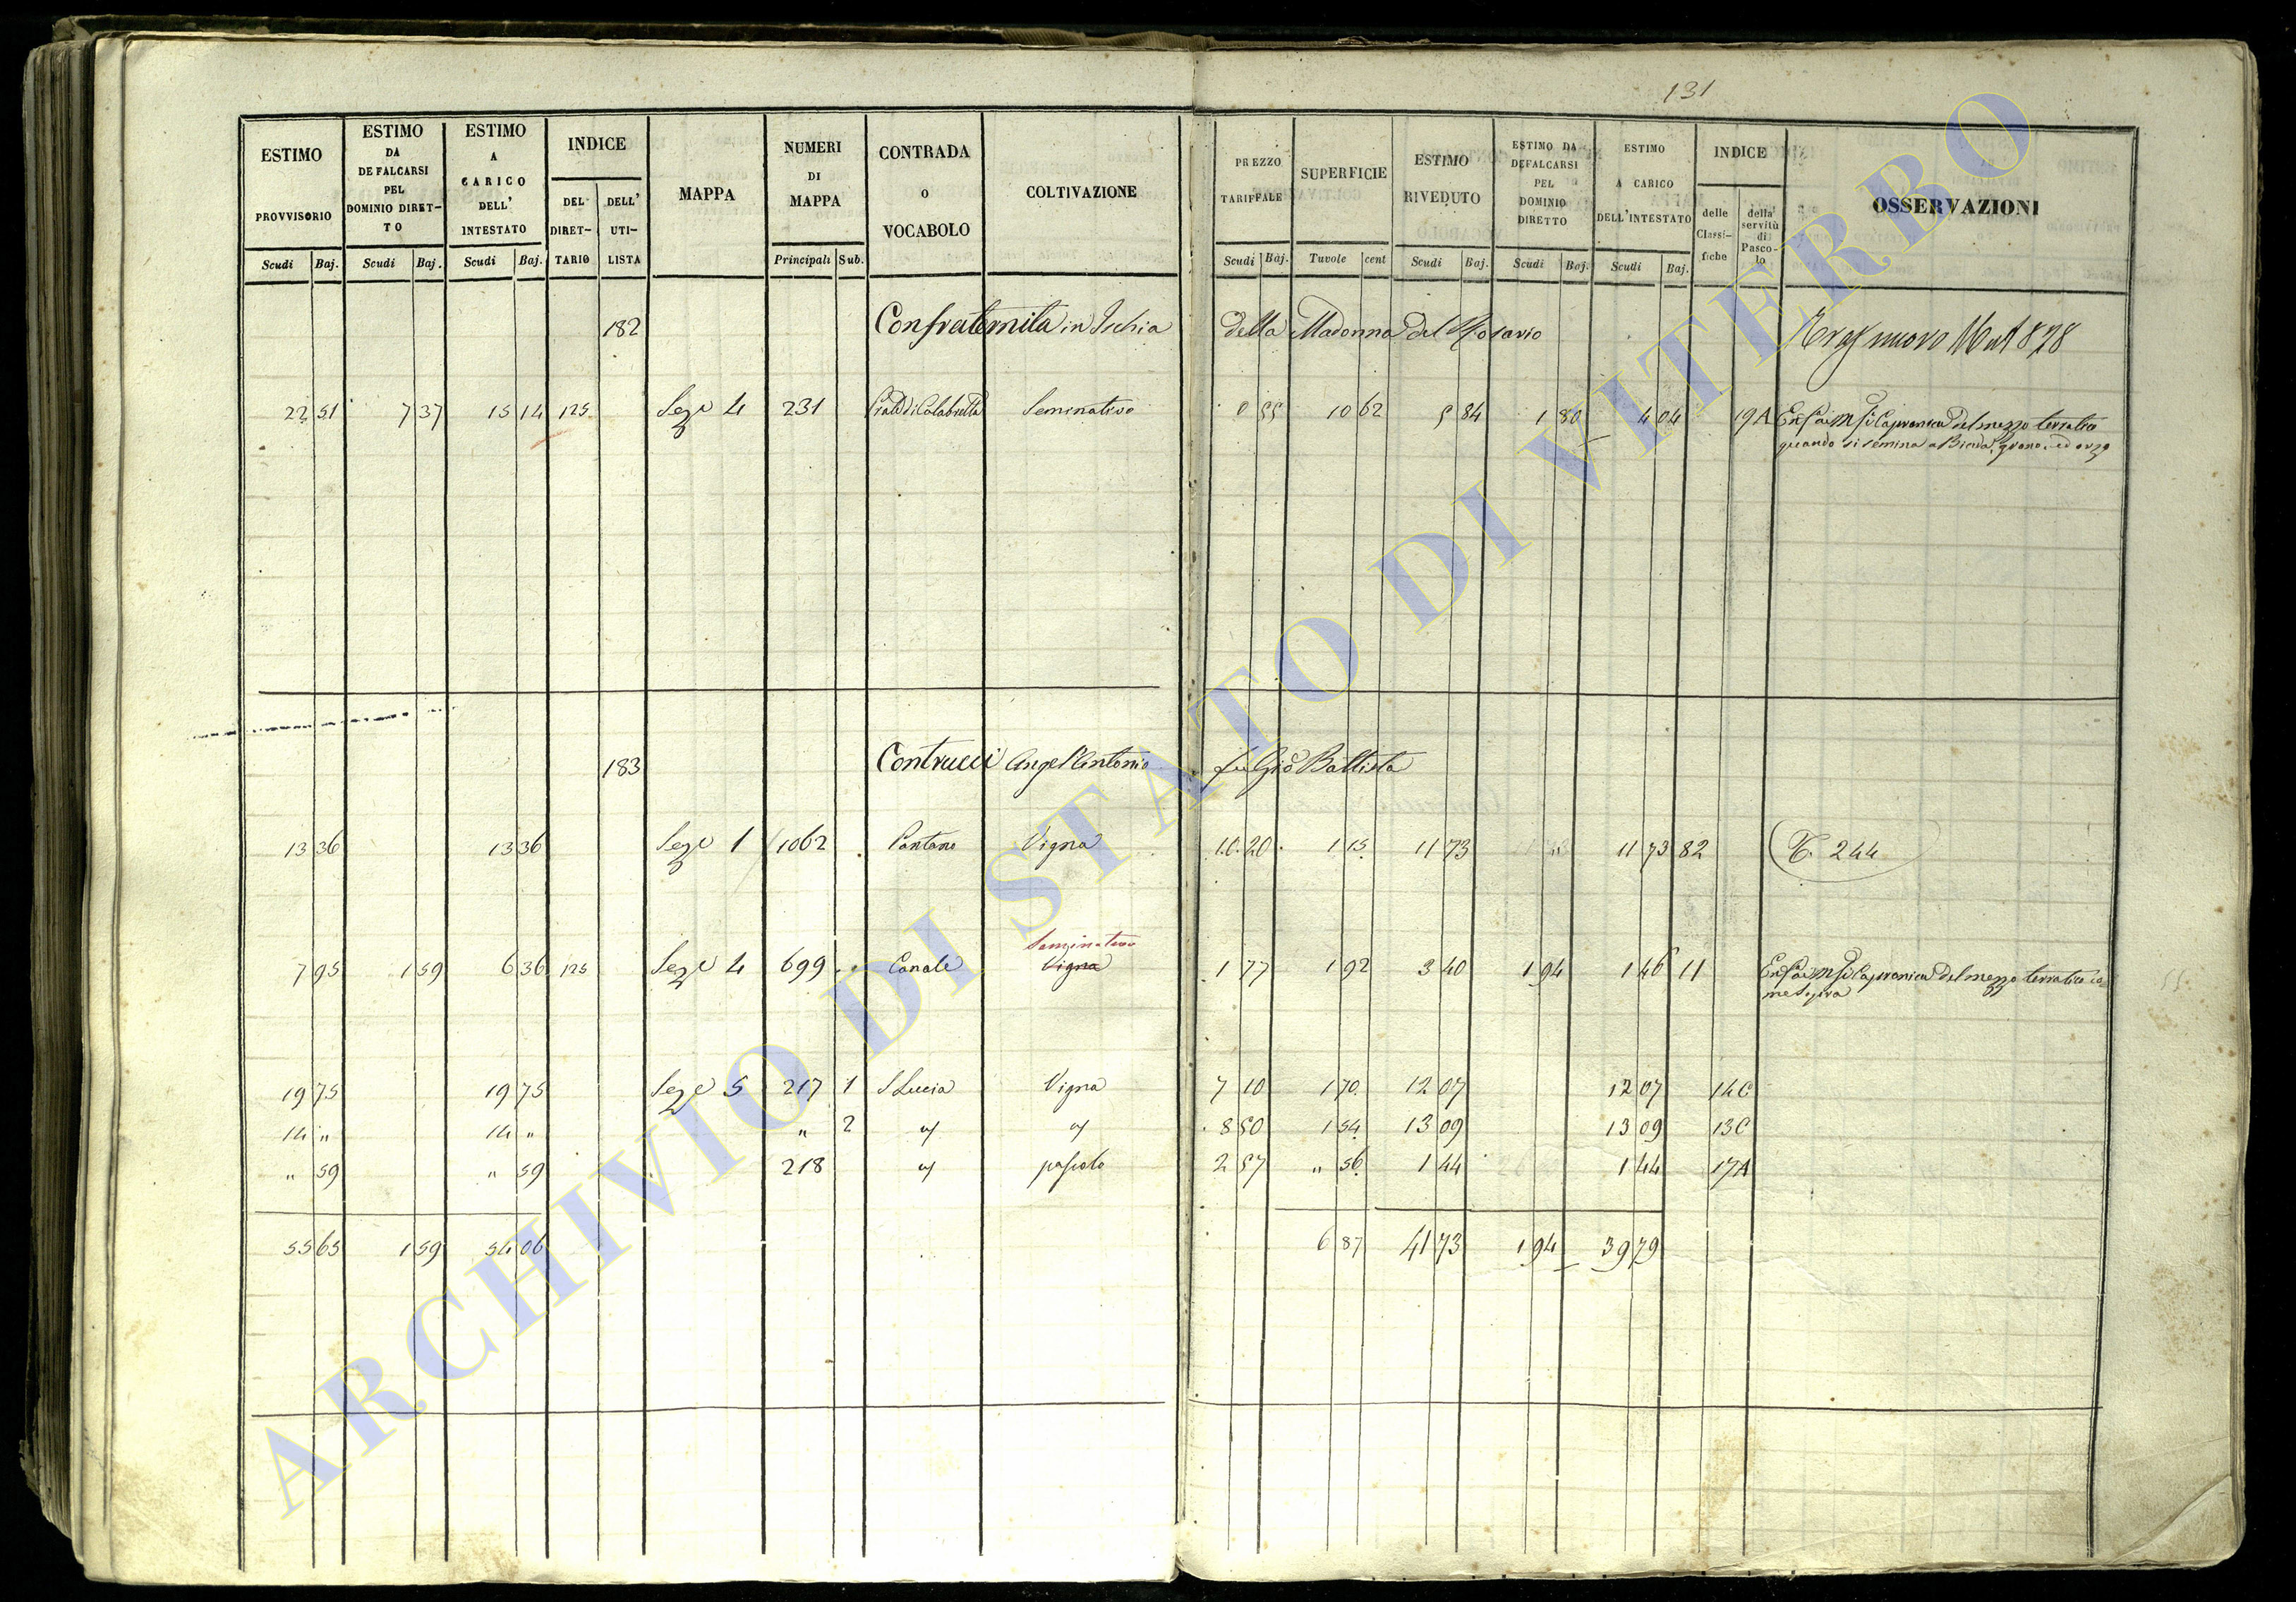 131
ESTIMO PROVVISORIO | ESTIMO DA DEFALCARSI PEL DOMINIO DIRET-TO | ESTIMO A CARICO DELL' INTESTATO | INDICE | MAPPA | NUMERI DI MAPPA | CONTRADA O VOCABOLO | COLTIVAZIONE | PREZZO TARIFFALE | SUPERFICIE | ESTIMO RIVEDUTO | ESTIMO DA DEFALCARSI PEL DOMINIO DIRETTO | ESTIMO A CARICO DELL'INTESTATO | INDICE | OSSERVAZIONI
DEL DIRET-TARIO | DELL' UTI-LISTA | delle Classi-fiche | della servitù di Pasco-lo
Scudi | Baj. | Scudi | Baj. | Scudi | Baj. | Principali | Sub. | Scudi | Baj. | Tavole | cent | Scudi | Baj. | Scudi | Baj. | Scudi | Baj.
182 Confraternita in Ischia della Madonna del Rosario nuovo
22 51 7 37 15 14 125 Sez.e 4 231 Prato di Calabretta Seminativo 0 55 10 62 5 84 1 80 4 04 19A Capranica del mezzo terratico
quando si semina a Biada, grano, ed orzo
183 Contrucci Angel'Antonio fu Gio Battista
13 36 13 36 Sez.e 1 1062 Pantano Vigna 10 20 1 15 11 73 " 11 73 82 T. 244
Seminativo
7 95 1 59 6 36 125 Sez.e 4 699 Canale Vigna 1 77 1 92 3 40 1 94 1 46 11 Capranica del mezzo terratico co=
me sopra
19 75 19 75 Sez.e 5 217 1 S Lucia Vigna 7 10 1 70 12 07 12 07 14C
14 " 14 " " 2 8 50 1 54 13 09 13 09 13C
" 59 " 59 218 pascolo 2 57 " 56 1 44 1 44 17A
55 65 1 59 54 06 6 87 41 73 1 94 39 79
ARCHIVIO DI STATO DI VITERBO